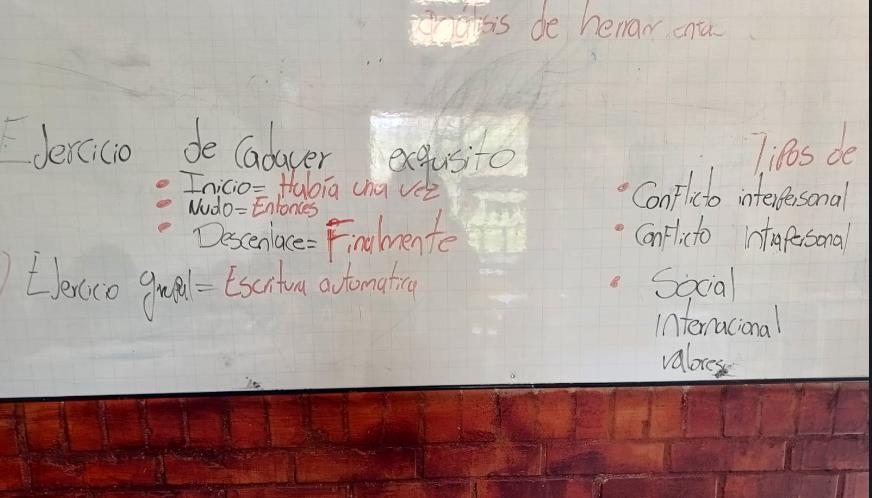 análisis de herramienta
Ejercicio de Cadaver exquisito
• Inicio= Había una vez
• Nudo= Entonces
• Descenlace= Finalmente
Ejercicio grupal= Escritura automatica
Tipos de
• Conflicto interpersonal
• Conflicto intrapersonal
• Social
internacional
valores